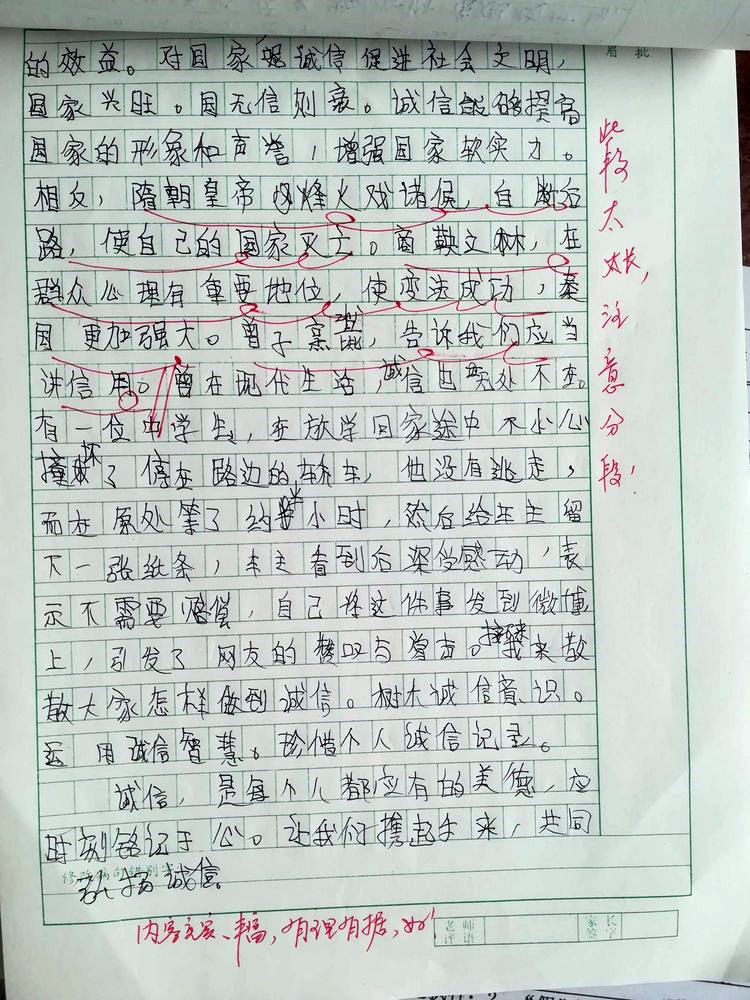 的效益。对国家是诚信促进社会文明,
国家兴旺。国无信则衰。诚信能够提高
国家的形象和声誉,增强国家软实力。
相反,隋朝皇帝因烽火戏诸候,自断后
路,使自己的国家灭亡。商鞅立林,在
群众心理有重要地位,使变法成功,秦
国更加强大。曾子烹彘,告诉我们应当
讲信用。曾在现代生活,诚信也无处不在。
有一位中学生,在放学回家途中不小心
撞坏了停在路边的轿车,他没有逃走,
而在原处等了约半小时,然后给车主留
下一张纸条,车主看到后深受感动,表
示不需要赔偿,自己将这件事发到微博
上,引发了网友的赞叹与 。接我来教
教大家怎样做到诚信。树木诚信意识。
运用诚信智慧。珍惜个人诚信记录。
诚信,是每个人都应有的美德,应
时刻铭记于心。让我们携起手来,共同
弘扬诚信。
眉批
此段太长,注意分段!
内容充实、丰富,有理有据,好!
老师评语
家长签字